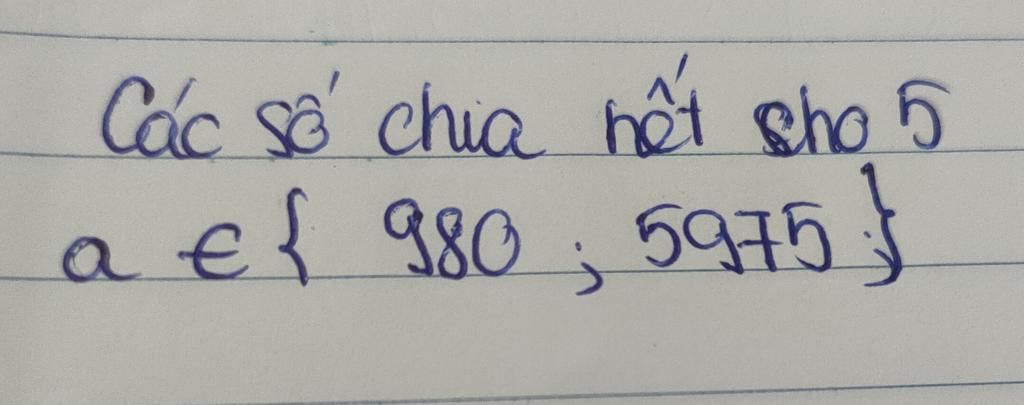 Các số chia hết cho 5
a ∈ { 980 ; 5975 }